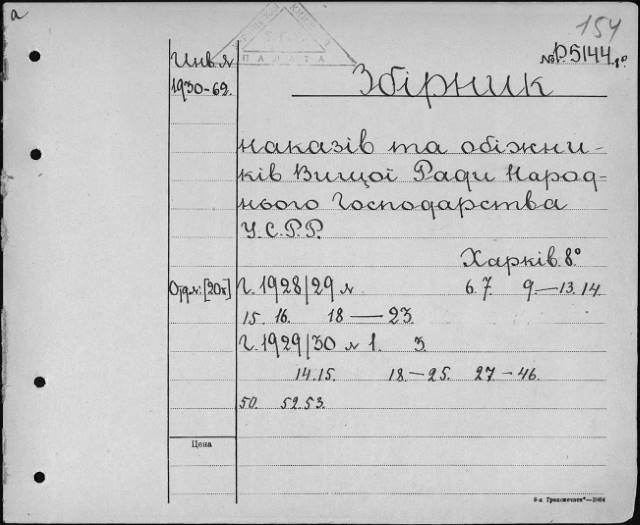 а
154
Инв.№
1930-62.
№Р.5144.1º
ПАЛАТА
Збірник
наказів та обіжни-
ків Вищої Ради Народ-
нього Господарства
У.С.Р.Р.
Харків. 8º
Г. 1928/29 № 6. 7. 9—13. 14.
15. 16. 18—23.
Г. 1929/30 № 1. 3.
14. 15. 18.—25. 27—46.
50. 52. 53.
Цена